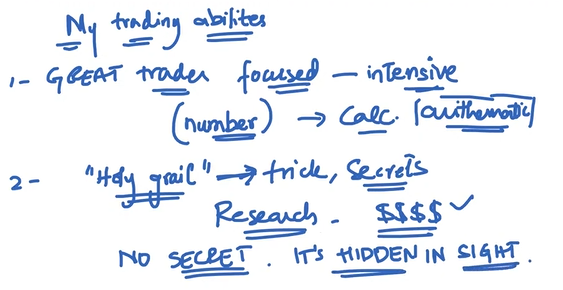 My trading abilites
1- GREAT trader focused - intensive
(number) → Calc. [authematic]
2- "Holy grail" → trick, Secrets
Research - $$$$ ✓
NO SECRET. IT'S HIDDEN IN SIGHT.